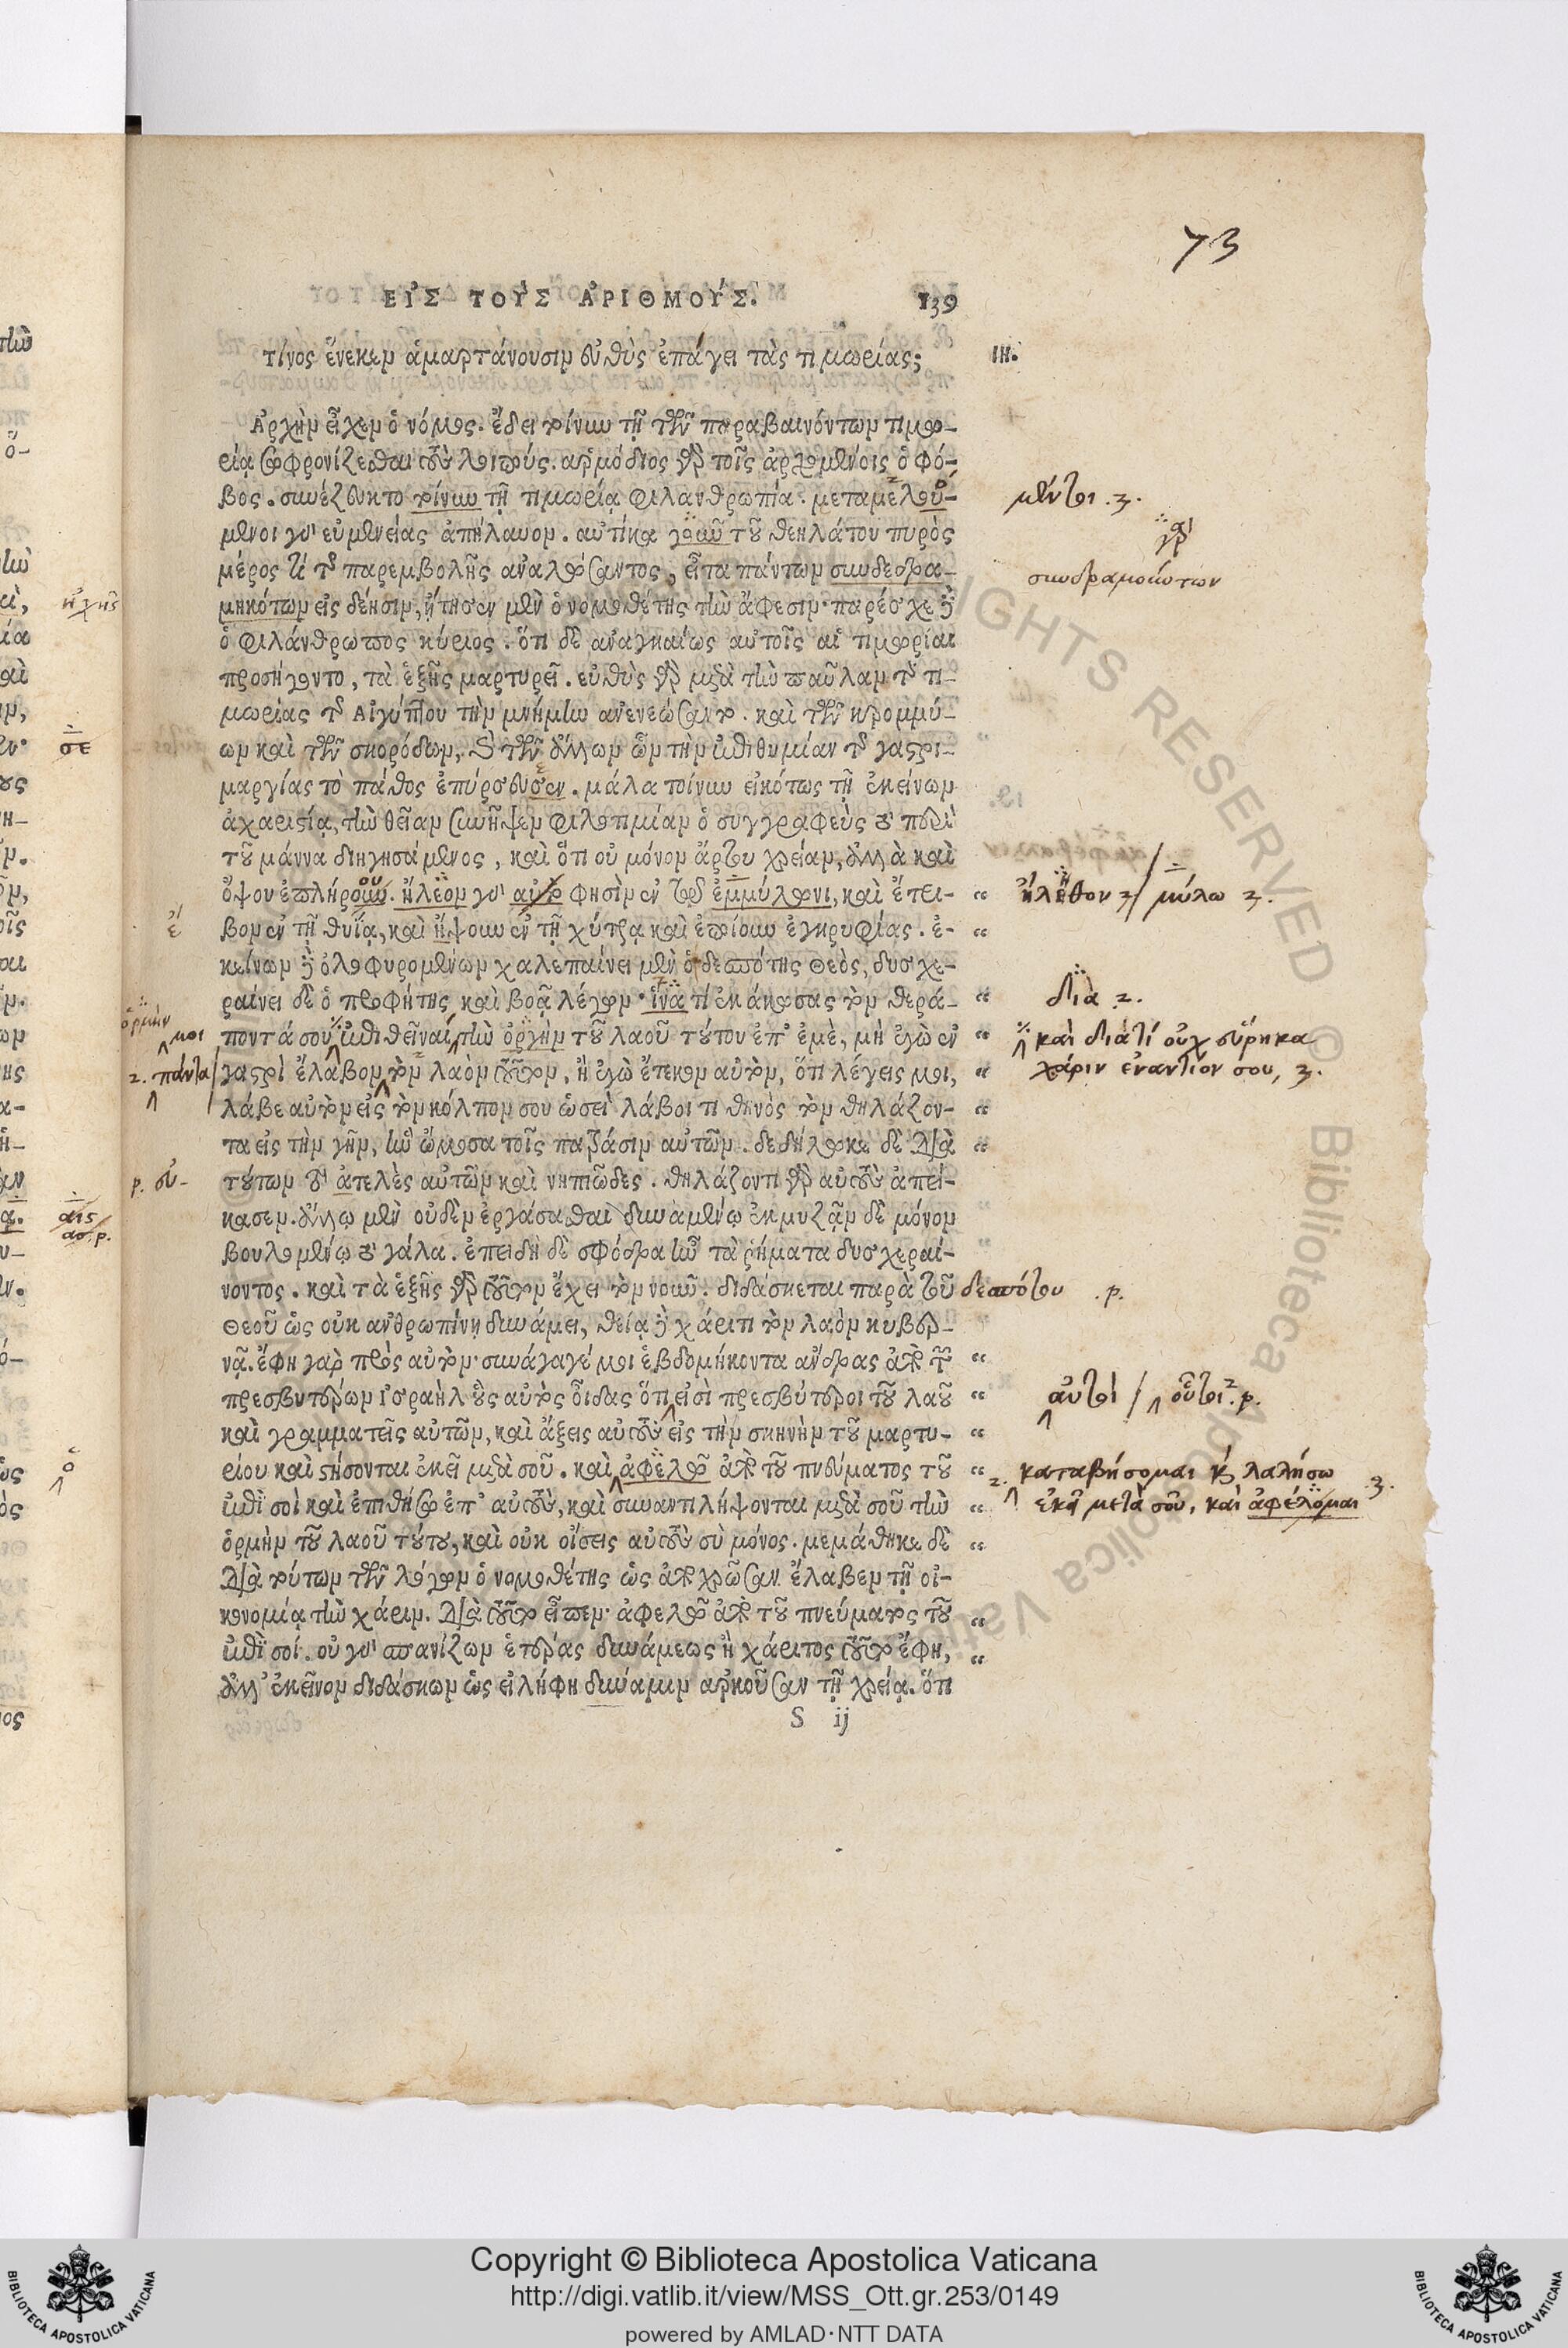 73
ΕἸΣ ΤΟῪΣ ἈΡΙΘΜΟΎΣ. 139
τίνος ἕνεκεν ἁμαρτάνουσιν εὐθὺς ἐπάγει τὰς τιμωρίας; ΙΗ.
Ἀρχὴν εἶχεν ὁ νόμος. ἔδει τοίνυν τῇ τῶν παραβαινόντων τιμω-
ρίᾳ σωφρονίζεσθαι τοὺς λοιπούς. ἁρμόδιος γὰρ τοῖς ἀρχομένοις ὁ φό-
βος. συνέζευκτο τοίνυν τῇ τιμωρίᾳ φιλανθρωπία. μεταμελού- μέντοι .3.
μενοι γὰρ εὐμενείας ἀπήλαυον. αὐτίκα γοῦν τοῦ θεηλάτου πυρὸς γάρ
μέρος τι τῆς παρεμβολῆς ἀναλώσαντος, εἶτα πάντων συνδεδρα- συνδραμόντων
μηκότων εἰς δέησιν, ᾔτησεν μὲν ὁ νομοθέτης τὴν ἄφεσιν· παρέσχε δὲ
ὁ φιλάνθρωπος κύριος. ὅτι δὲ ἀναγκαίως αὐτοῖς αἱ τιμωρίαι
προσήγοντο, τὰ ἑξῆς μαρτυρεῖ. εὐθὺς γὰρ μετὰ τὴν παῦλαν τῆς τι-
μωρίας τῆς Αἰγύπτου τὴν μνήμην ἀνενεώσαντο. καὶ τῶν κρομμύ-
ων καὶ τῶν σκορόδων, καὶ τῶν ἄλλων ὧν τὴν ἐπιθυμίαν τῆς γαστρι-
μαργίας τὸ πάθος ἐπύρσευσεν. μάλα τοίνυν εἰκότως τῇ ἐκείνων
ἀχαριστίᾳ, τὴν θείαν συνῆψεν φιλοτιμίαν ὁ συγγραφεὺς τὰ περὶ
τοῦ μάννα διηγησάμενος, καὶ ὅτι οὐ μόνον ἄρτου χρείαν, ἀλλὰ καὶ
ὄψου ἐπλήρουν. ἤλεον γὰρ αὐτὸ φησὶν ἐν τῷ ἐμμύλωνι, καὶ ἔτρι- “ ἤληθον 2/ μύλω 2.
ἔ βον ἐν τῇ θυΐᾳ, καὶ ἥψουν ἐν τῇ χύτρᾳ καὶ ἐποίουν ἐγκρυφίας. ἐ- “
κείνων δὲ ὀλοφυρομένων χαλεπαίνει μὲν ὁ δεσπότης Θεὸς, δυσχε-
ραίνει δὲ ὁ προφήτης καὶ βοᾷ λέγων· ἵνα τί ἐκάκωσας τὸν θερά- “ διὰ 2.
ὁρμὴν μοι ποντά σου ἐπιθεῖναι τὴν ὀργὴν τοῦ λαοῦ τούτου ἐπ’ ἐμὲ, μὴ ἐγὼ ἐν “ καὶ διατί οὐχ εὕρηκα
2. πάντα/ γαστρὶ ἔλαβον τὸν λαὸν τοῦτον, ἢ ἐγὼ ἔτεκον αὐτὸν, ὅτι λέγεις μοι, “ χάριν ἐναντίον σου, 3.
λάβε αὐτὸν εἰς τὸν κόλπον σου ὡσεὶ λάβοι τιθηνὸς τὸν θηλάζον- “
τα εἰς τὴν γῆν, ἣν ὤμοσα τοῖς πατράσιν αὐτῶν. δεδήλωκε δὲ διὰ “
τούτων τὸ ἀτελὲς αὐτῶν καὶ νηπιῶδες. θηλάζοντι γὰρ αὐτοὺς ἀπεί-
κασεν. ἄλλῳ μὲν οὐδὲν ἐργάσασθαι δυναμένῳ ἐκμυζᾷν δὲ μόνον
βουλομένῳ τὸ γάλα. ἐπειδὴ δὲ σφόδρα ἦν τὰ ῥήματα δυσχεραί-
νοντος. καὶ τὰ ἑξῆς γὰρ τοῦτον ἔχει τὸν νοῦν. διδάσκεται παρὰ τοῦ δεσπότου .p.
Θεοῦ ὡς οὐκ ἀνθρωπίνῃ δυνάμει, θείᾳ δὲ χάριτι τὸν λαὸν κυβερ-
νᾷ. ἔφη γὰρ πρὸς αὐτὸν· συνάγαγέ μοι ἑβδομήκοντα ἄνδρας ἀπὸ τῶν “
πρεσβυτέρων Ἰσραὴλ οὓς αὐτὸς οἶδας ὅτι εἰσὶ πρεσβύτεροι τοῦ λαοῦ “ αὐτοὶ / οὗτοι 2. p.
καὶ γραμματεῖς αὐτῶν, καὶ ἄξεις αὐτοὺς εἰς τὴν σκηνὴν τοῦ μαρτυ- “
ρίου καὶ στήσονται ἐκεῖ μετὰ σοῦ. καὶ ἀφελῶ ἀπὸ τοῦ πνεύματος τοῦ “ 2. καταβήσομαι καὶ λαλήσω
ἐπὶ σοὶ καὶ ἐπιθήσω ἐπ’ αὐτοὺς, καὶ συναντιλήψονται μετὰ σοῦ τὴν “ ἐκεῖ μετὰ σοῦ, καὶ ἀφέλομαι 3.
ὁρμὴν τοῦ λαοῦ τούτου, καὶ οὐκ οἴσεις αὐτοὺς σὺ μόνος. μεμάθηκε δὲ “
διὰ τούτων τῶν λόγων ὁ νομοθέτης ὡς ἀποχρῶσαν ἔλαβεν τῇ οἰ-
κονομίᾳ τὴν χάριν. διὰ τοῦτο εἶπεν· ἀφελῶ ἀπὸ τοῦ πνεύματος τοῦ “
ἐπὶ σοί. οὐ γὰρ σπανίζων ἑτέρας δυνάμεως ἢ χάριτος τοῦτο ἔφη, “
ἀλλ’ ἐκεῖνον διδάσκων ὡς εἰλήφη δύναμιν ἀρκοῦσαν τῇ χρείᾳ. ὅτι
S ij
RIGHTS RESERVED © Biblioteca Apostolica Vaticana
Copyright © Biblioteca Apostolica Vaticana
http://digi.vatlib.it/view/MSS_Ott.gr.253/0149
powered by AMLAD·NTT DATA
BIBLIOTECA APOSTOLICA VATICANA
BIBLIOTECA APOSTOLICA VATICANA